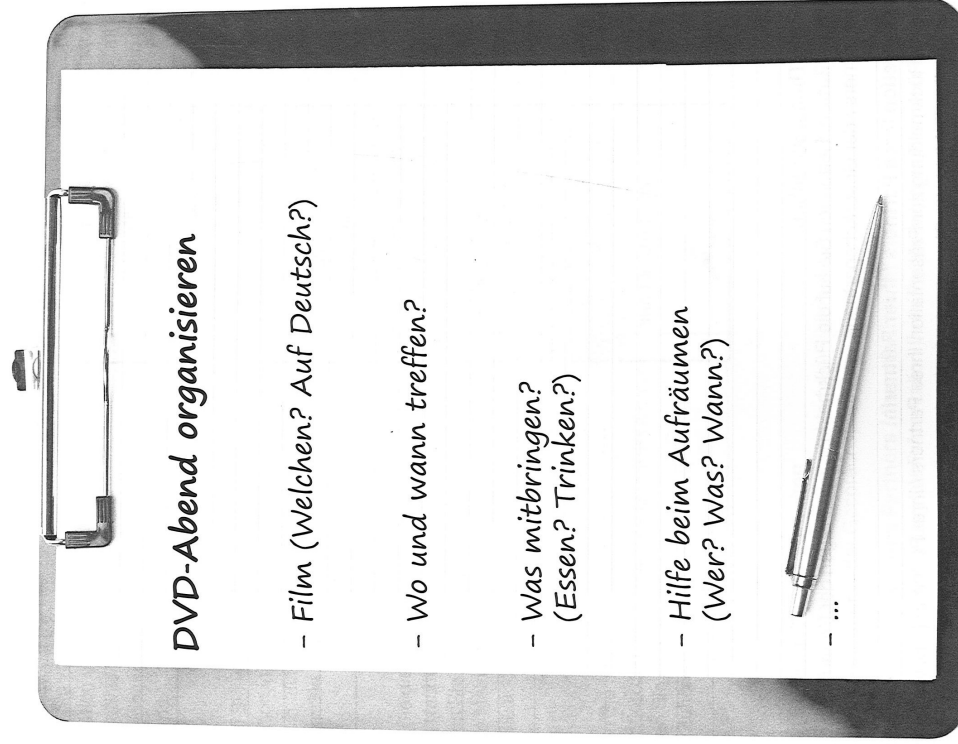 DVD-Abend organisieren
– Film (Welchen? Auf Deutsch?)
– Wo und wann treffen?
– Was mitbringen?
(Essen? Trinken?)
– Hilfe beim Aufräumen
(Wer? Was? Wann?)
– ...